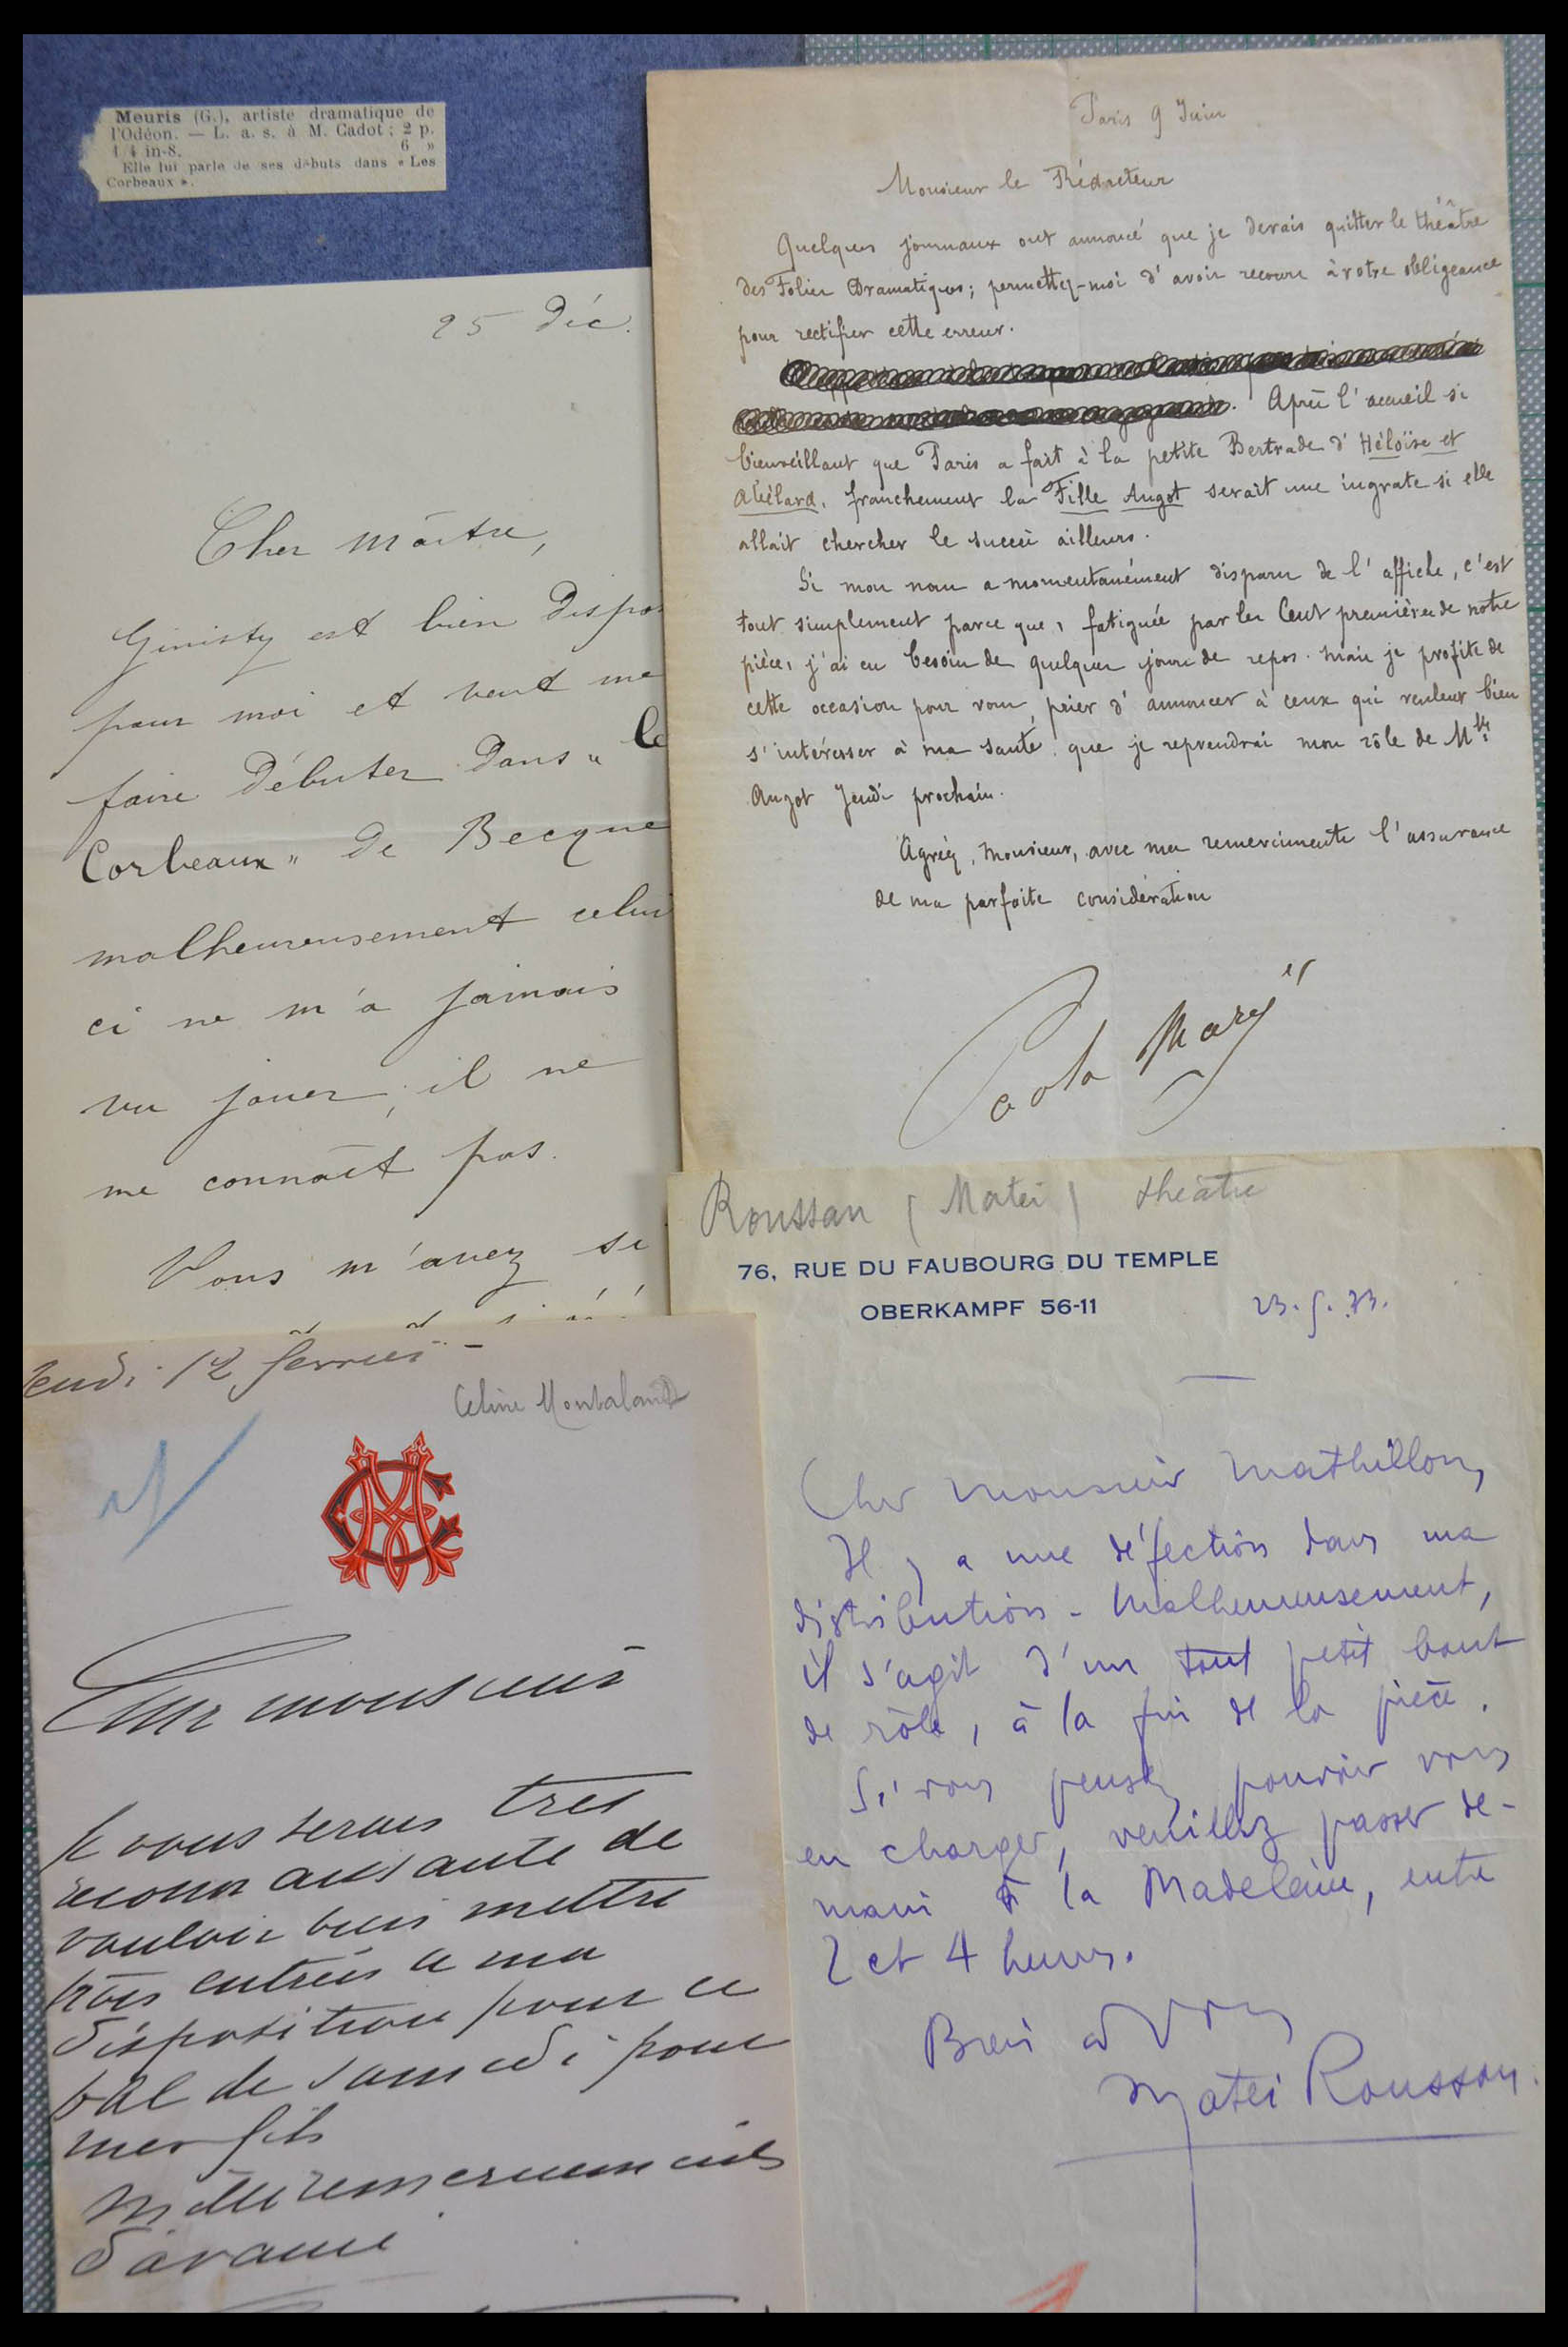 Meuris (G.), artiste dramatique de
l'Odéon. — L. a. s. à M. Cadot ; 2 p.
1/4 in-8. 6 »
Elle lui parle de ses débuts dans « Les
Corbeaux ».
25 Déc.
Cher Maître,
Ginisty est bien dispo
pour moi et veut me
faire débuter dans "le
Corbeaux" de Becque
malheureusement celui
ci ne m'a jamais
vu jouer, il ne
me connaît pas.
Vous m'avez si
Paris 9 Juin
Monsieur le Rédacteur
Quelques journaux ont annoncé que je devais quitter le théâtre
des Folies Dramatiques; permettez-moi d'avoir recours à votre obligeance
pour rectifier cette erreur.
Après l'accueil si
bienveillant que Paris a fait à la petite Bertrade d'Héloïse et
Abélard, franchement la Fille Angot serait une ingrate si elle
allait chercher le succès ailleurs.
Si mon nom a momentanément disparu de l'affiche, c'est
tout simplement parce que, fatiguée par les Cent premières de notre
pièce, j'ai eu besoin de quelques jours de repos. Mais je profite de
cette occasion pour vous prier d'annoncer à ceux qui veulent bien
s'intéresser à ma santé que je reprendrai mon rôle de Mlle
Angot Jeudi prochain.
Agréez, Monsieur, avec mes remerciments l'assurance
de ma parfaite considération
Paola Marié
Roussan (Matei) théâtre
76, RUE DU FAUBOURG DU TEMPLE
OBERKAMPF 56-11
23.5.33.
Cher Monsieur Mathillon,
Il y a une défection dans ma
distribution - Malheureusement,
il s'agit d'un tout petit bout
de rôle, à la fin de la pièce.
Si vous pensez pouvoir vous
en charger, veuillez passer de-
main à la Madeleine, entre
2 et 4 heures.
Bien à vous
Matei Roussou.
Jeudi 12 fevrier -
Celine Montaland
CM
Cher monsieur
Je vous serais tres
reconnaissante de
vouloir bien mettre
trois entrées a ma
disposition pour ce
bal de samedi pour
mes fils
Mille remerciements
d'avance